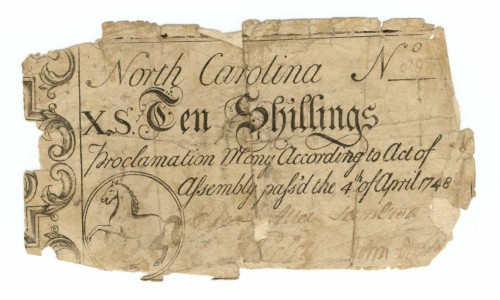 North Carolina No
X.S. Ten Shillings
Proclamation Mony According to Act of
Assembly pass'd the 4th of April 1748